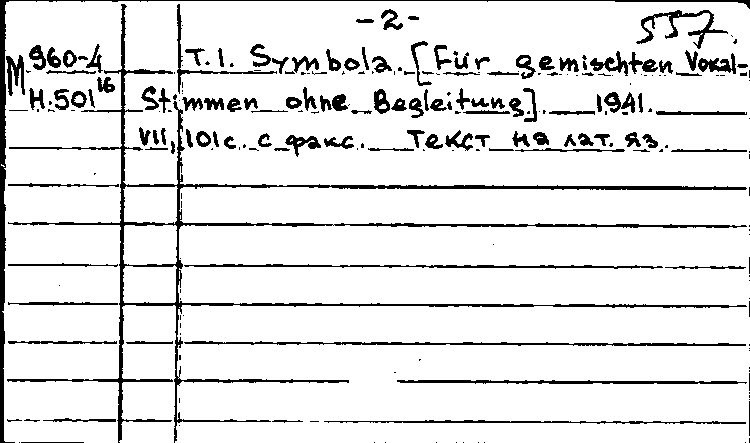 -2-
557
М 960-4 Т.1. Symbola. [Für gemischten Vokal-
Н.501 16 Stimmen ohne Begleitung]. 1941.
VII, 101 с. с факс. Текст на лат. яз.